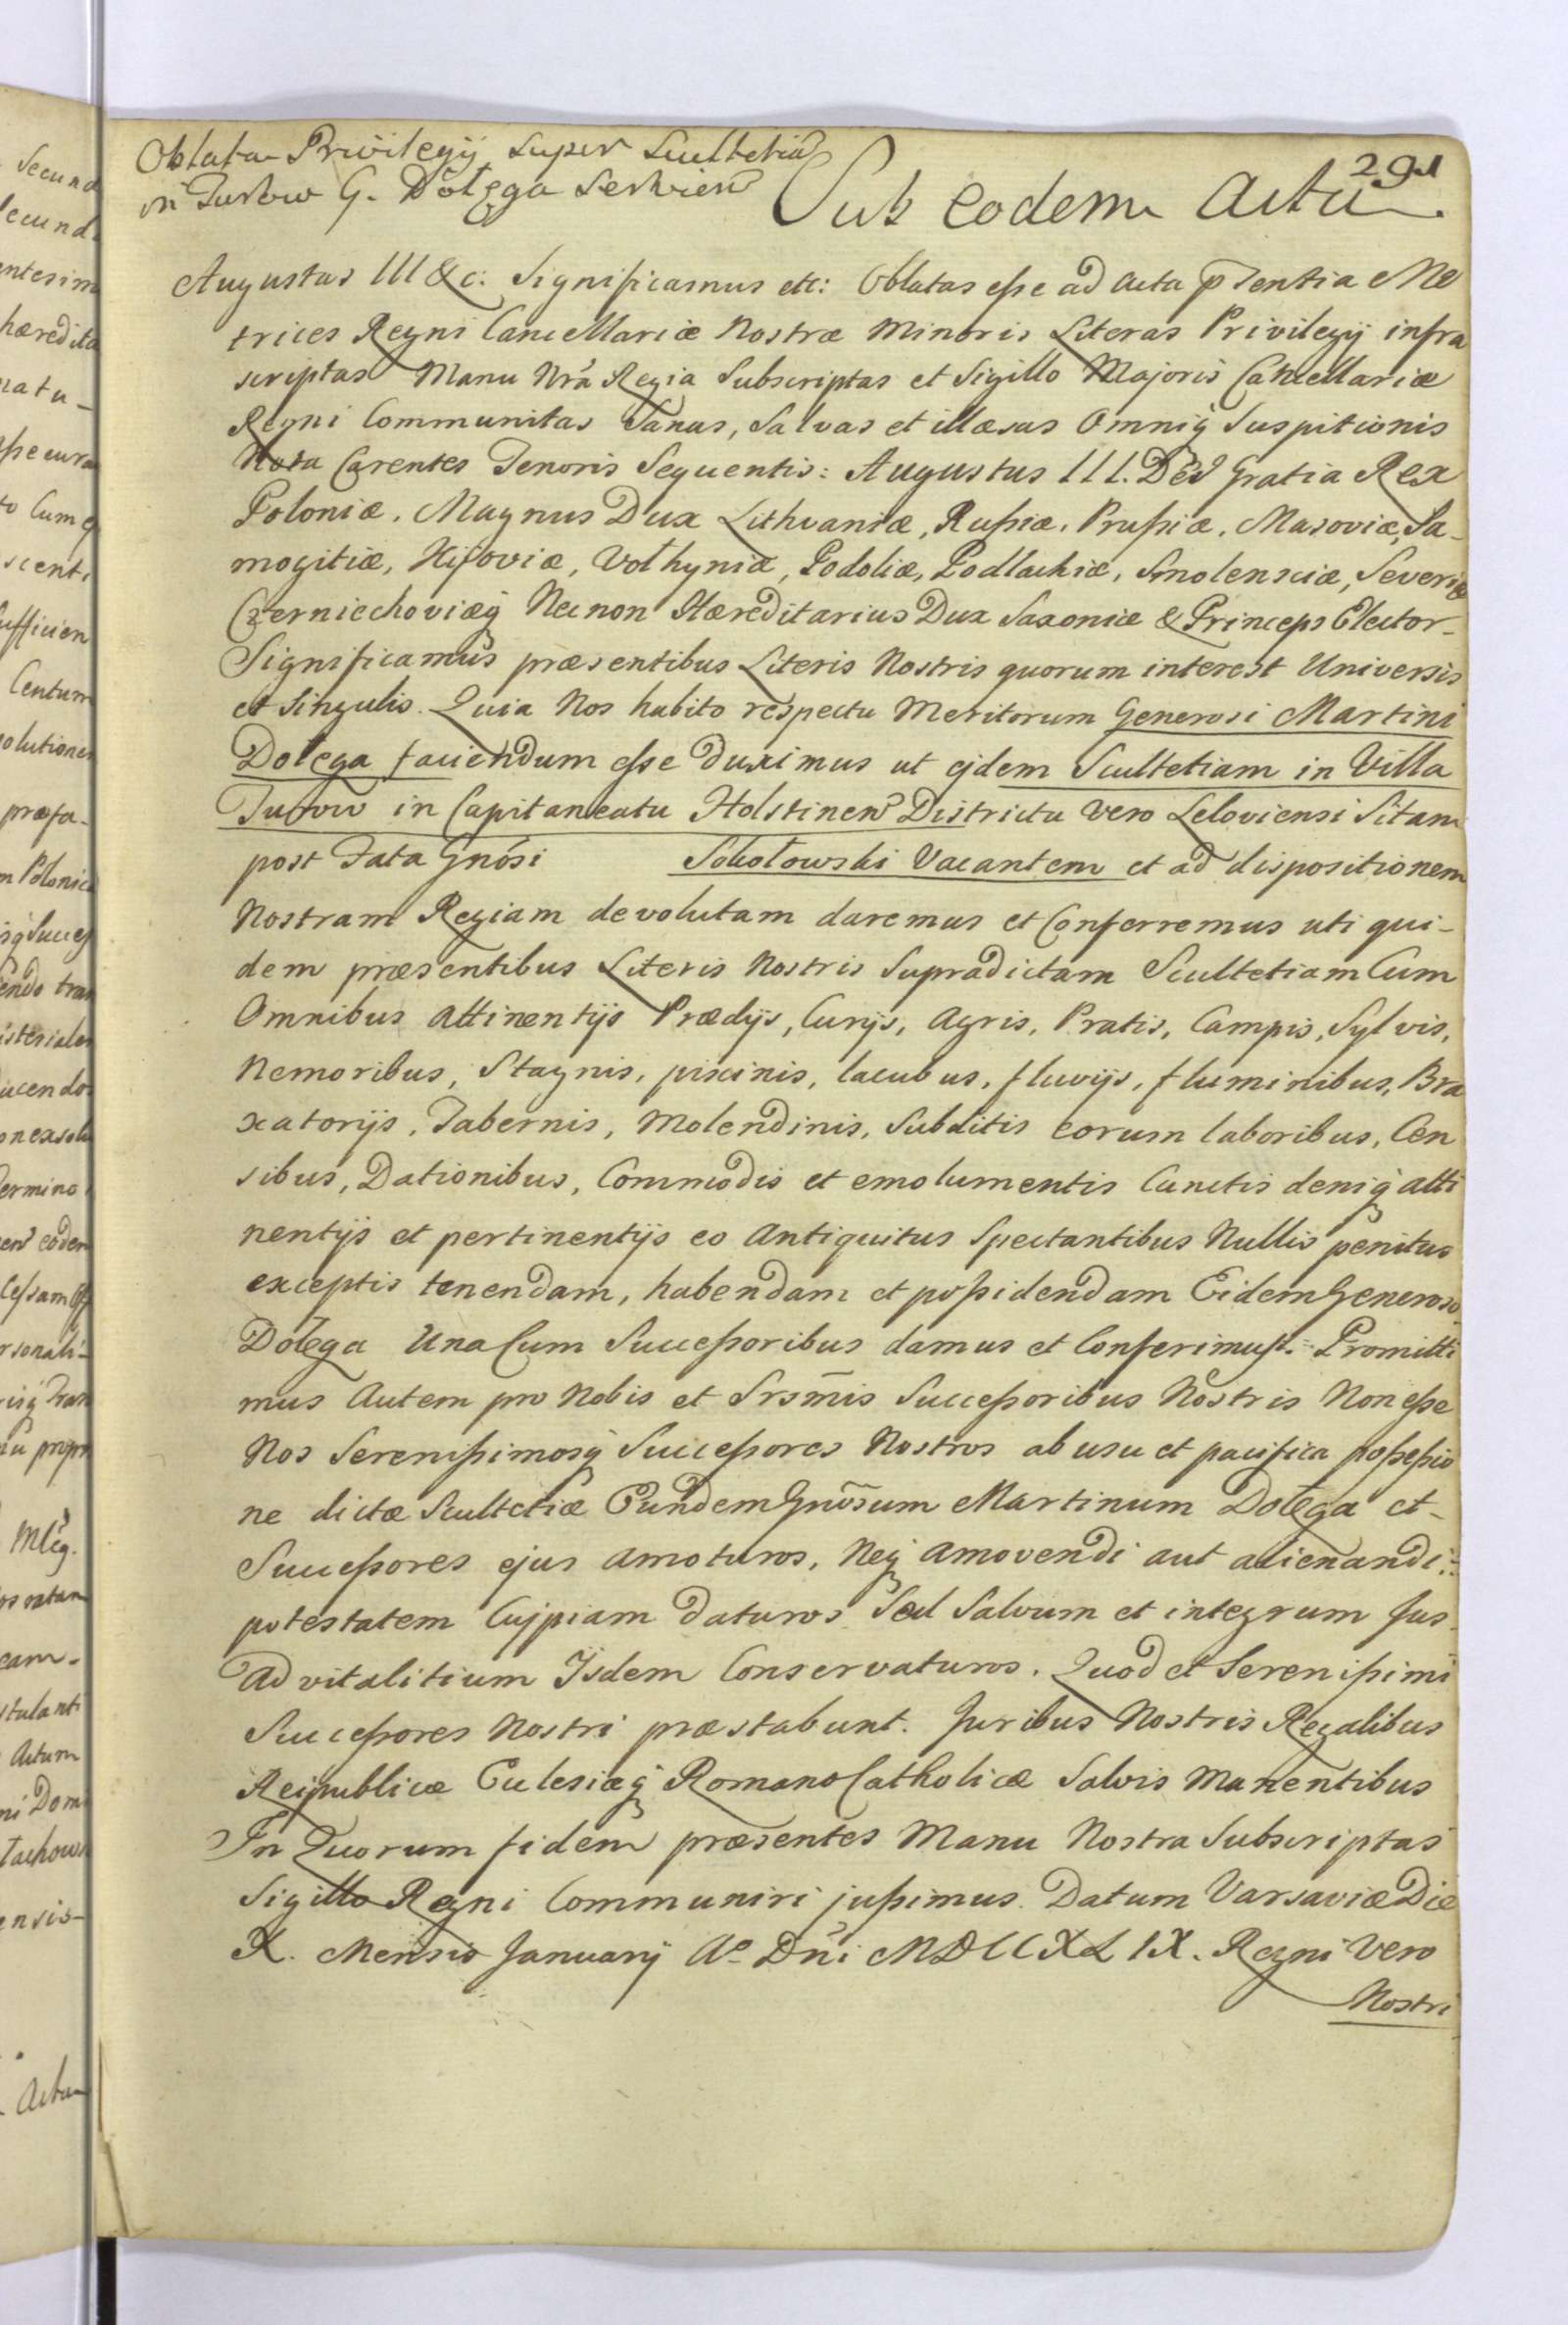 291
Oblata Privilegij super Scultetia
in Turow G. Dołęga Servien
Sub eodem Actu
Augustus III &c: Significamus ett: Oblatas eſse ad Acta pñsentia Me
trices Regni Cancellariæ Nostræ Minoris Literas Privilegij infra
scriptas Manu Nrã Regia Subscriptas et Sigillo Majoris Cancellariæ
Regni Communitas Sanas, Salvas et illæsas Omniq̃ Suspitionis
Nota Carentes Tenoris Sequentis: Augustus III. Dei Gratia Rex
Poloniæ, Magnus Dux Lithvaniæ, Ruſsiæ, Pruſsiæ, Masoviæ, Sa-
mogitiæ, Kijoviæ, Volhyniæ, Podoliæ, Podlachiæ, Smolensciæ, Severiæ
Czerniechoviæq̃ Necnon Hæreditarius Dux Saxoniæ & Princeps Elector-
Significamus præsentibus Literis Nostris quorum interest Universis
et Singulis. Quia Nos habito respectu Meritorum Generosi Martini
Dołęga faciendum eſse duximus ut ejdem Scultetiam in Villa
Turow in Capitaneatu Holstinen Districtu vero Leloviensi Sitam
post Fata Gnõsi Sokołowski Vacantem et ad dispositionem
Nostram Regiam devolutam daremus et Conferremus uti qui-
dem præsentibus Literis Nostris Supradictam Scultetiam Cum
Omnibus attinentijs Prædijs, Curijs, Agris, Pratis, Campis, Sylvis,
Nemoribus, Stagnis, piscinis, lacubus, fluvijs, fluminibus, Bra
xatorijs, Tabernis, Molendinis, Subditis eorum laboribus, Cen
sibus, Dationibus, Commodis et emolumentis Cunctis deniq̃ atti
nentijs et pertinentijs eo Antiquitus Spectantibus Nullis penitus
exceptis tenendam, habendam et poſsidendam Eidem Generoso
Dołęga Una Cum Succeſsoribus damus et Conferimus. Promitti
mus Autem pro Nobis et Srsm̃is Succeſsoribus Nostris Non eſse
Nos Sereniſsimosq̃ Succeſsores Nostros ab usu et pacifica poſseſsio
ne dictæ Scultetiæ Eundem Gnõsum Martinum Dołęga et-
Succeſsores ejus amoturos, Neq̃ amovendi aut alienandi
potestatem Cujpiam daturos Sed Salvum et integrum Jus
Advitalitium Ijsdem Conservaturos. Quod et Sereniſsimi
Succeſsores Nostri præstabunt. Juribus Nostris Regalibus
Reipublicæ Eclesiæq̃ Romano Catholicæ Salvis Manentibus
In Quorum fidem præsentes Manu Nostra Subscriptas
Sigillo Regni Communiri juſsimus. Datum Varsaviæ Die
X. Mensis Januarij Aº Dñi MDCCXLIX. Regni Vero
Nostri